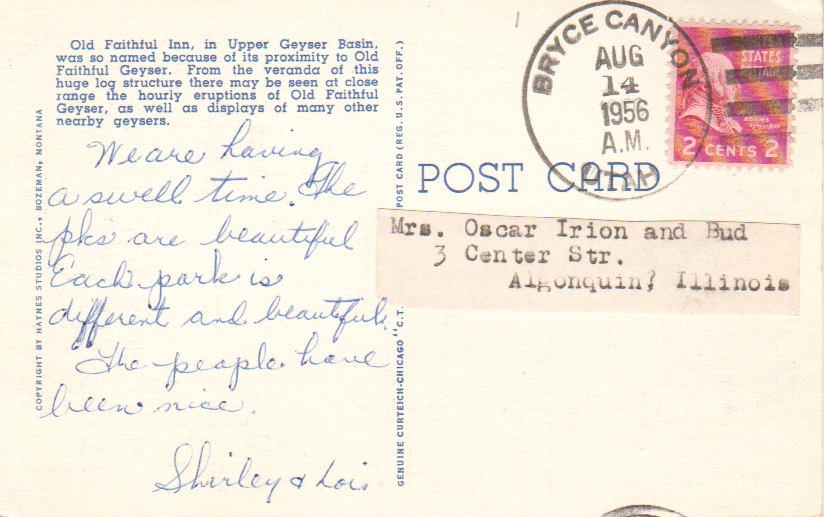 Old Faithful Inn, in Upper Geyser Basin,
was so named because of its proximity to Old
Faithful Geyser. From the veranda of this
huge log structure there may be seen at close
range the hourly eruptions of Old Faithful
Geyser, as well as displays of many other
nearby geysers.
We are having
a swell time. The
pks are beautiful
Each park is
different and beautiful.
The people have
been nice.
Shirley & Lois
COPYRIGHT BY HAYNES STUDIOS INC., BOZEMAN, MONTANA
GENUINE CURTEICH-CHICAGO "C.T. POST CARD (REG. U.S. PAT. OFF.)
BRYCE CANYON
AUG
14
1956
A.M.
UTAH
STATES
POSTAGE
ADAMS
2 CENTS 2
POST CARD
Mrs. Oscar Irion and Bud
3 Center Str.
Algonquin, Illinois